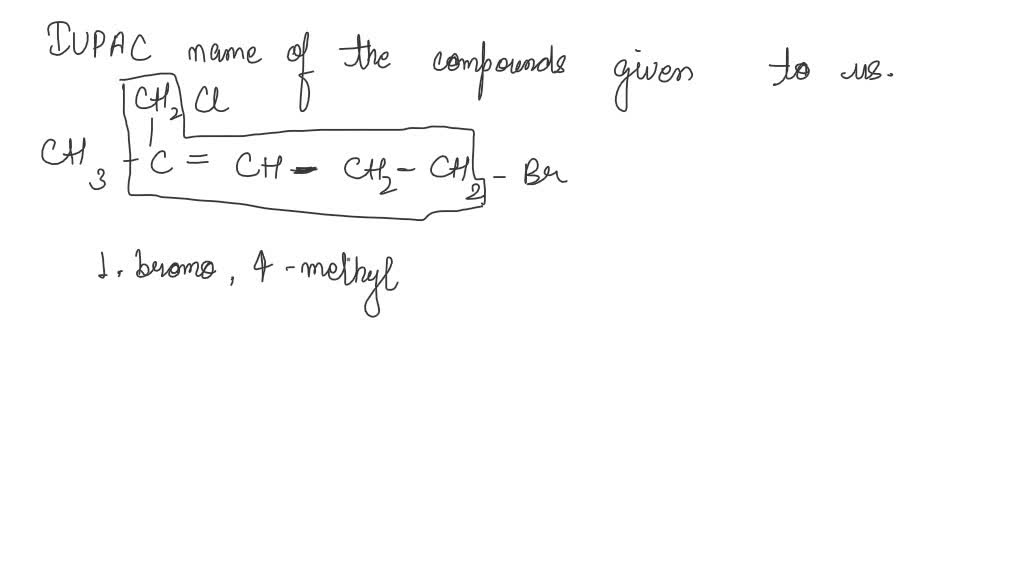 IUPAC name of the compounds given to us.
CH2 Cl
|
CH3 - C = CH - CH2 - CH2 - Br
1. bromo, 4-methyl